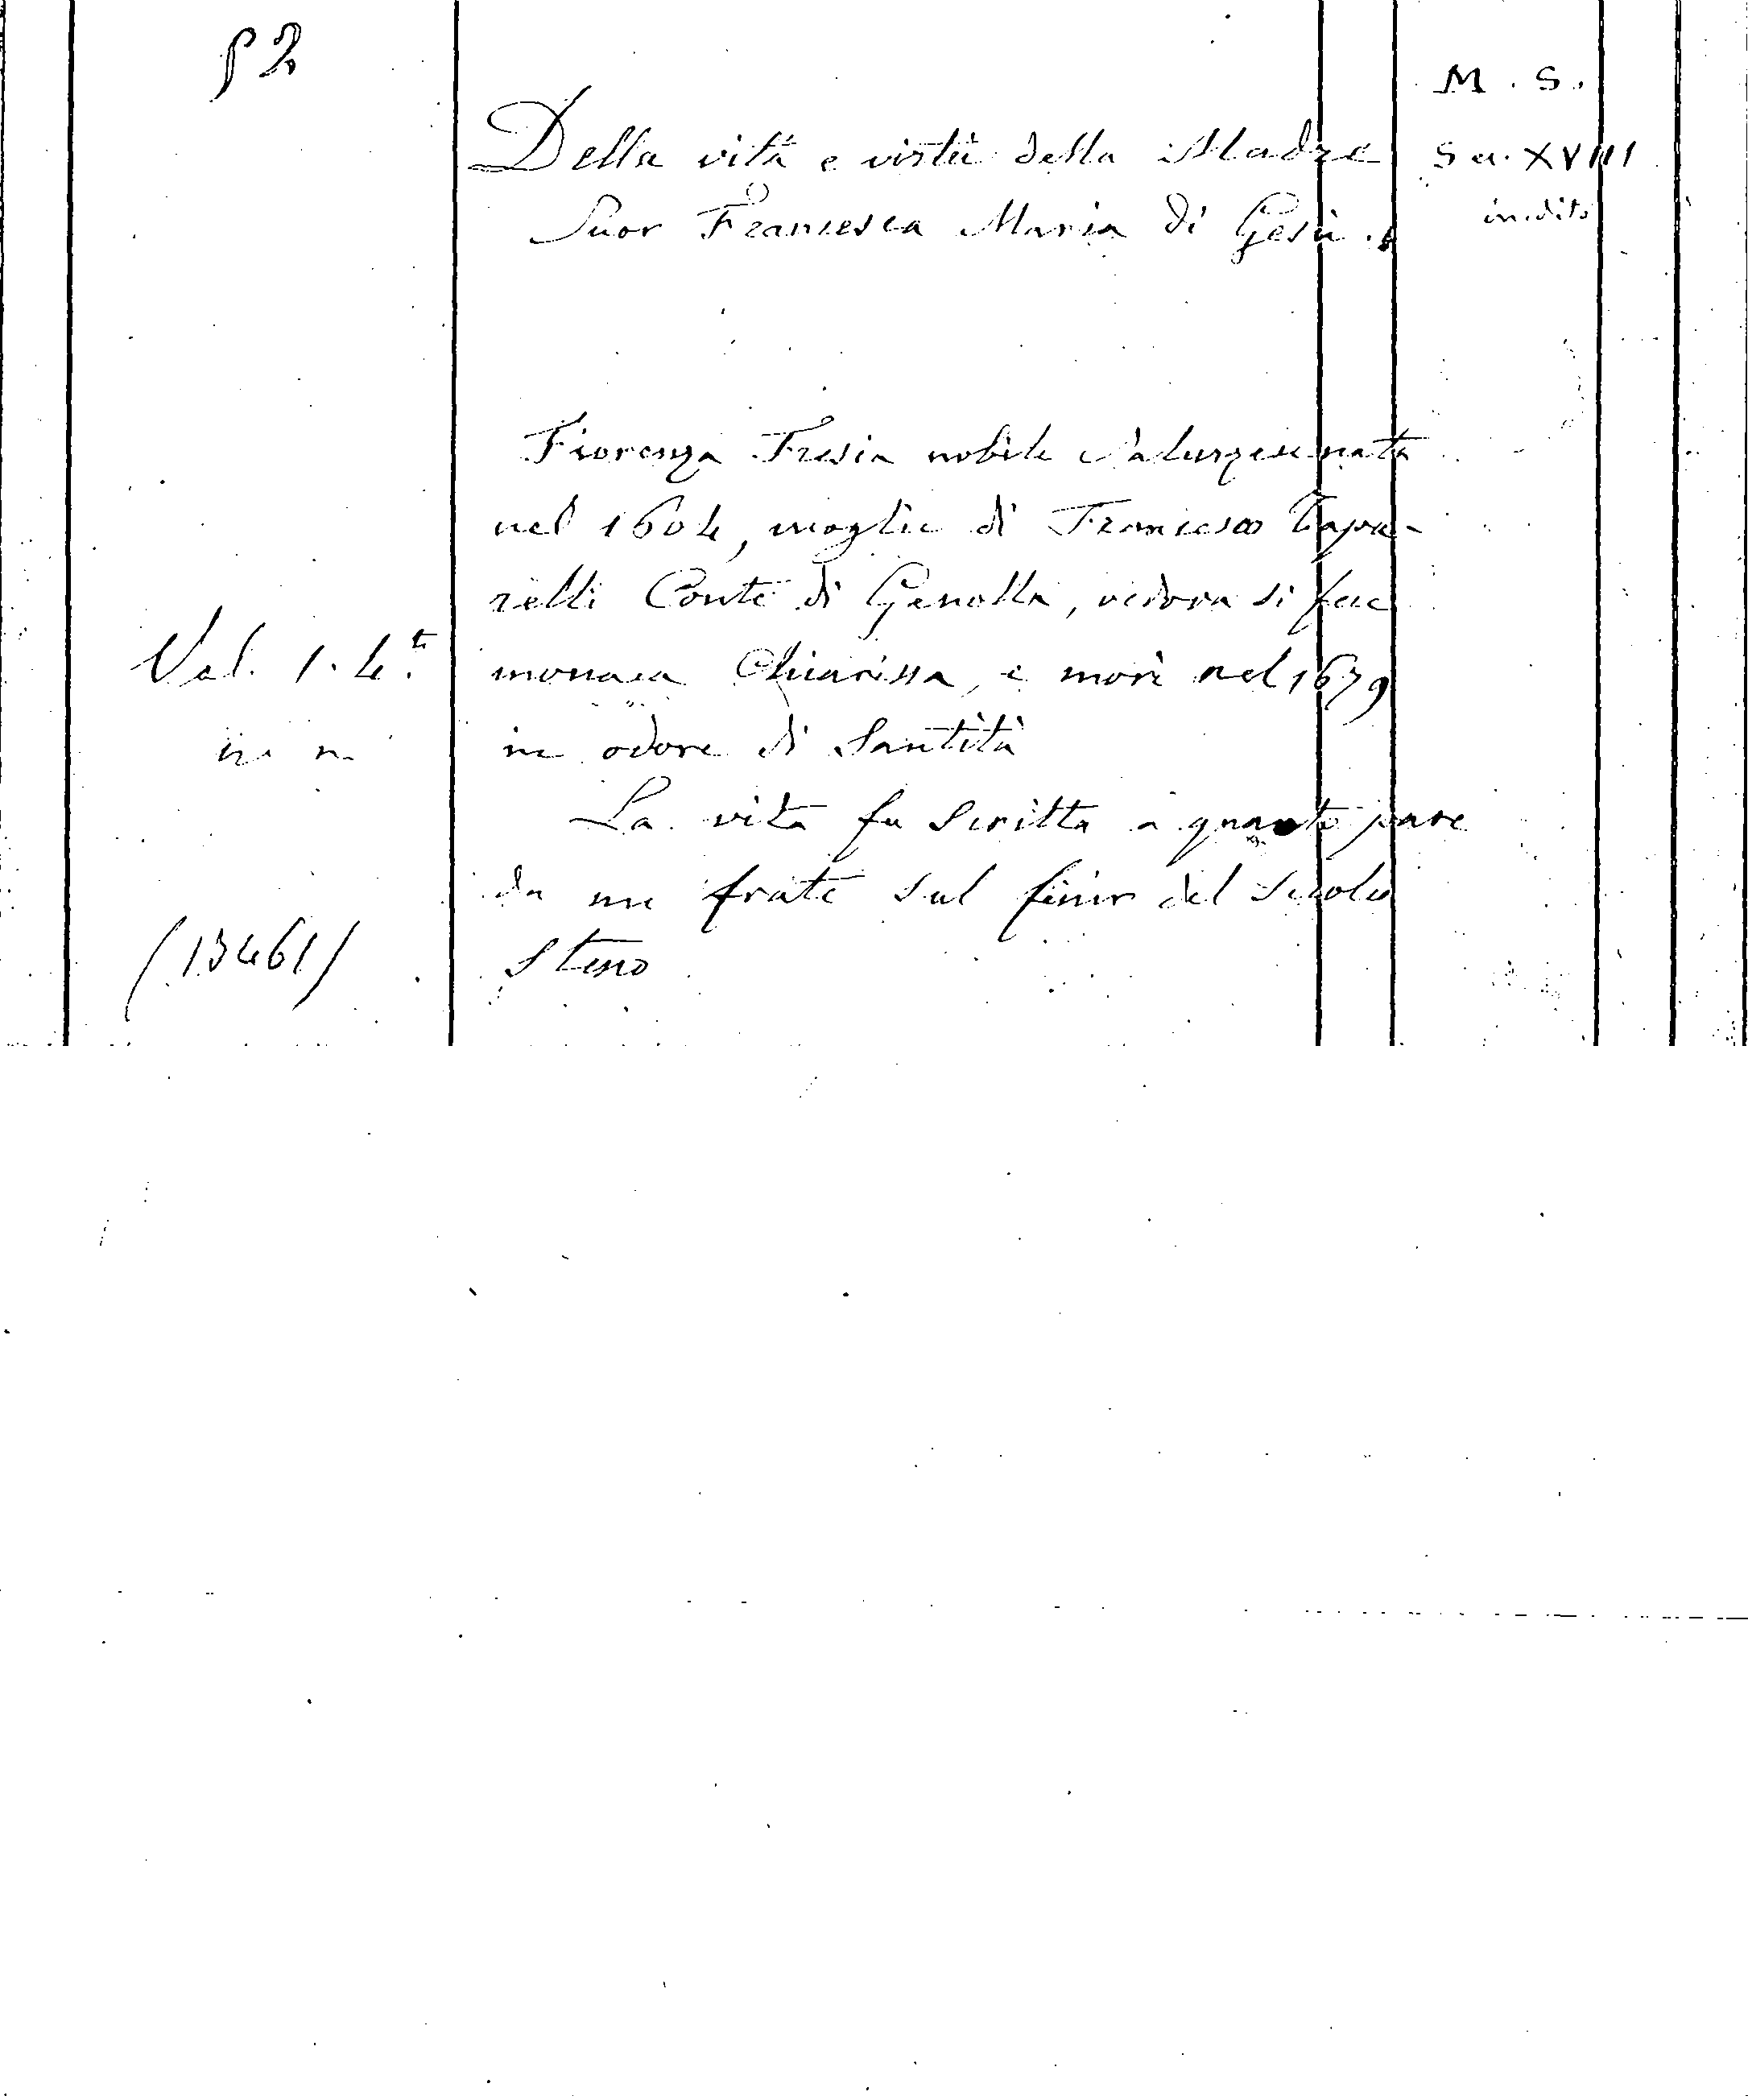 52
M. S.
Della vita e virtù della Madre
Sec. XVIII
Suor Francesca Maria di Gesù.
inedito
Fiorenza Fresia nobile Saluzzese nata
nel 1604, moglie di Francesco Tapa-
relli Conte di Genolla, vedova si fece
Vol. 1. 4.to
monaca Chiarissa, e morì nel 1679
in odore di Santità
La vita fu Scritta a quanto pare
da un frate Sul finir del Secolo
(13461)
Stesso